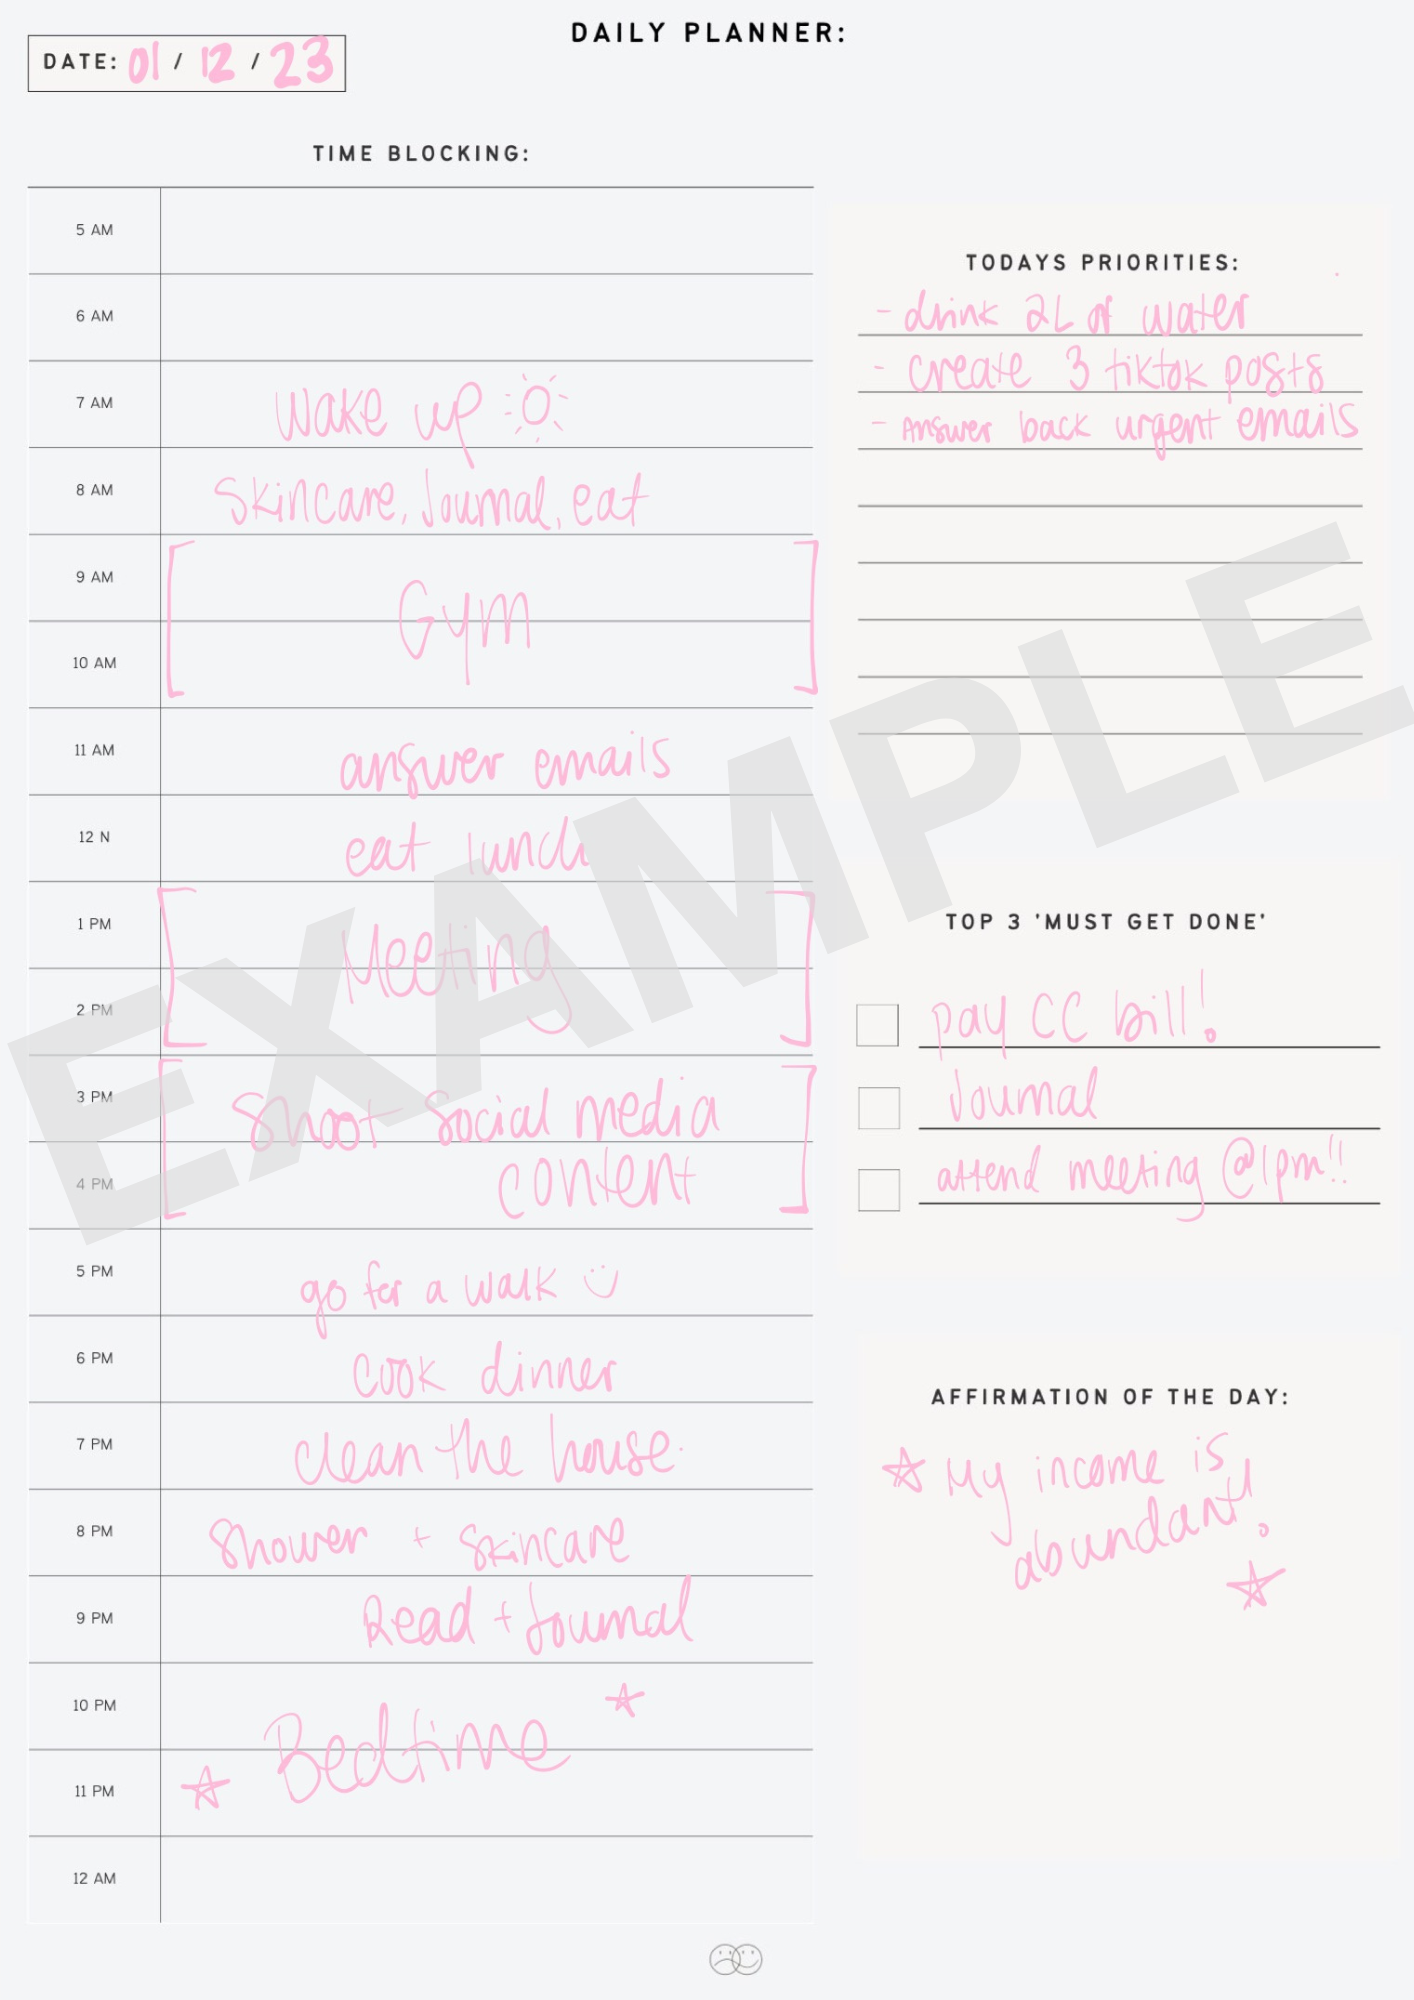 DAILY PLANNER:
DATE: 01 / 12 / 23
TIME BLOCKING:
5 AM
6 AM
7 AM wake up
8 AM Skincare, Journal, eat
9 AM
Gym
10 AM
11 AM answer emails
12 N eat lunch
1 PM
Meeting
2 PM
3 PM Shoot Social media
4 PM content
5 PM go for a walk
6 PM cook dinner
7 PM clean the house.
8 PM Shower + Skincare
9 PM Read + Journal
10 PM
Bedtime
11 PM
12 AM
TODAYS PRIORITIES:
- drink 2L of water
- create 3 tiktok posts
- Answer back urgent emails
TOP 3 'MUST GET DONE'
pay CC bill!
Journal
attend meeting @1pm!!
AFFIRMATION OF THE DAY:
My income is
abundant!
EXAMPLE